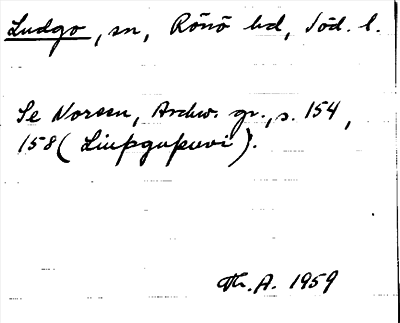 Ludgo, sn, Rönö hd, Söd. l.
Se Noreen, Archiv. gr., s. 154,
158 (Liuþguþuvi).
Th. A. 1959